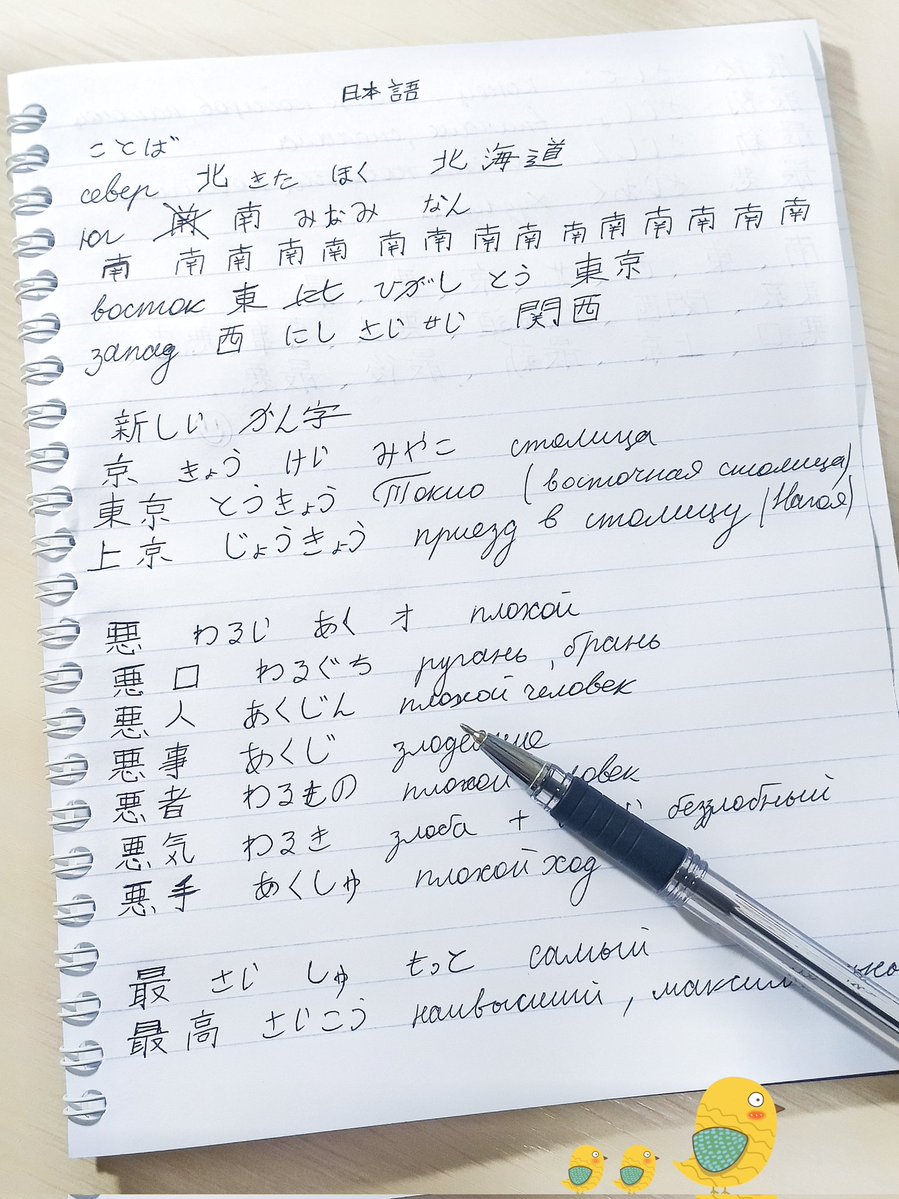 日本語
ことば
север 北 きた ほく 北海道
юг 南 みなみ なん
南 南 南 南 南 南 南 南 南 南 南 南 南 南 南
восток 東 ひがし とう 東京
запад 西 にし さい せい 関西
新しい かん字
京 きょう けい みやこ столица
東京 とうきょう Токио (восточная столица)
上京 じょうきょう приезд в столицу (Нагоя)
悪 わるい あく オ плохой
悪口 わるぐち ругань, брань
悪人 あくじん плохой человек
悪事 あくじ
悪者 わるもの плохой
悪気 わるき злоба + беззлобный
悪手 あくしゅ плохой ход
最 さい しゅ もっと самый
最高 さいこう наивысший,